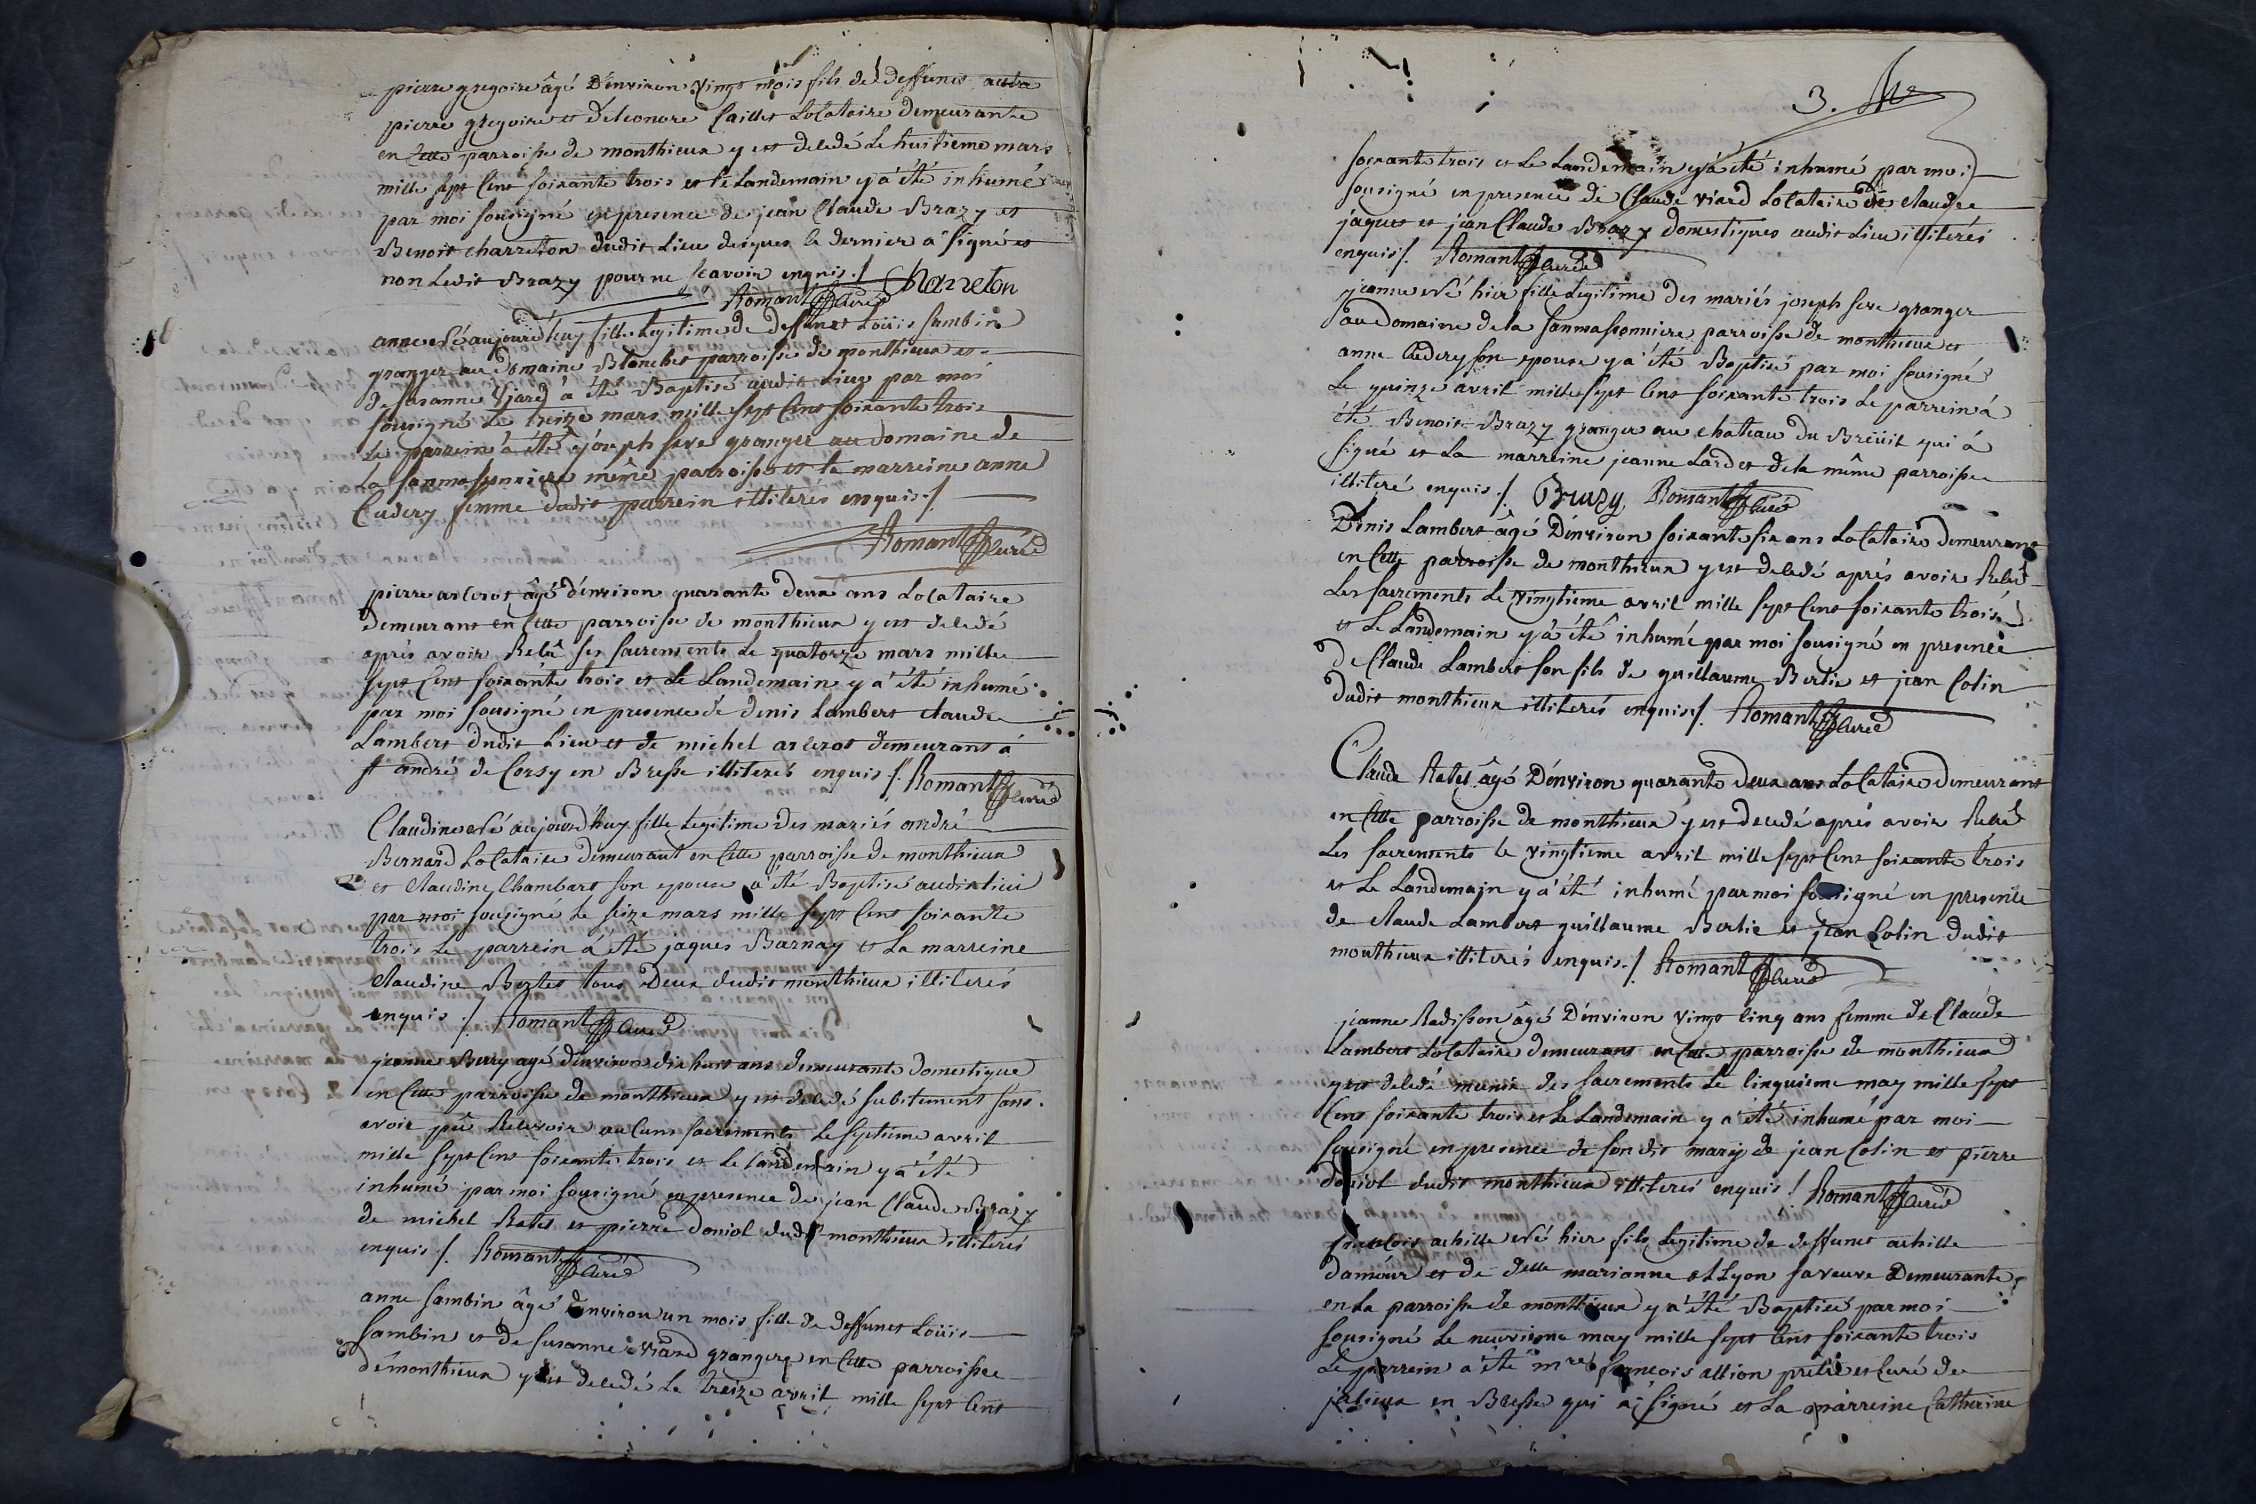 pierre gregoire âgé D'environ vingt mois fils de deffunct autre
pierre gregoire et d'eleonore Caillet Locataire demeurante
en Cette parroisse de monthieux y est decedé Le huitieme mars
mille sept Cent soixante trois et le Landemain y a été inhumé
par moi sousigné en presence de jean Claude Brazy et
Benoit charreton dudit Lieu desquels le dernier a signé et
non Ledit Brazy pour ne scavoir enquis ./. Charreton
Romant Curé
anne né aujourd'huy fille Legitime de deffunct Loüis Sambin
granger au domaine Blanchet parroisse de monthieux et
de susanne Viard á été Baptisé audit Lieu par moi
sousigné Le treize mars mille sept Cent soixante trois
Le parrein á été joseph seve granger au domaine de
La sanmassonniere même parroisse et la marreine anne
Cudery femme dudit parrein illiterés enquis ./.
Romant Curé
pierre arcerot âgé d'environ quarante deux ans Locataire
demeurant en Cette parroisse de monthieux y est decedé
aprés avoir Recû ses sacrements Le quatorze mars mille
sept Cent soixante trois et le Landemain y a été inhumé
par moi sousigné en presence de denis Lambert claude
Lambert dudit Lieu et de michel arcerot demeurant á
st andré de Corsy en Bresse illiterés enquis ./. Romant Curé
Claudine né aujourd'huy fille Legitime des mariés andré
Bernard Locataire demeurant en Cette parroisse de monthieux
et claudine Chambart son epouse a été Baptisé audit lieu
par moi sousigné le seize mars mille sept Cent soixante
trois Le parrein á été jaques Barnay et La marreine
claudine Bertet tous Deux dudit monthieux illiterés
enquis ./. Romant Curé
jeanne Bery agé d'environ dix huit ans demeurante domestique
en Cette parroisse de monthieux y est decedé subitement sans
avoir pû Recevoir auCuns sacrements le septieme avril
mille sept Cent soixante trois et le landemain y a été
inhumé par moi sousigné en presence de jean Claude Brazy
de michel Ratet et pierre doniol dudit monthieux illiterés
enquis ./. Romant Curé
anne sambin âgé d'environ un mois fille de deffunct Loüis
sambin et de susanne viard grangere en Cette parroisse
de monthieux y est decedé Le treize avril mille sept Cent
3.
soixante trois et Le Landemain y á été inhumé par moi
sousigné en presence de Claude viard Locataire de claude
jaquet et jean Claude Brazy domestiques audit Lieu illiterés
enquis ./. Romant Curé
jeanne né hier fille Legitime des mariés joseph seve granger
au domaine de la sanmassonniere parroisse de monthieux et
anne Cudery son epouse y a été Baptisé par moi sousigné
Le quinze avril mille sept Cent soixante trois Le parrein á
été Benoit Brazy granger au chateau du Breüil qui á
signé et La marreine jeanne Lardet de la même parroisse
illiteré enquis ./. Brazy Romant Curé
Denis Lambert âgé D'environ soixante six ans Locataire demeurant
en Cette parroisse de monthieux y est decedé aprés avoir Recû
Les sacrements Le vingtieme avril mille sept Cent soixante trois
et Le Landemain y á été inhumé par moi sousigné en presence
de Claude Lambert son fils de guillaume Bertie et jean Colin
dudit monthieux illiterés enquis ./. Romant Curé
Claude Ratet âgé D'environ quarante deux ans Locataire demeurant
en Cette parroisse de monthieux y est decedé aprés avoir Recû
Les sacrements le vingtieme avril mille sept Cent soixante trois
et Le Landemain y a été inhumé par moi sousigné en presence
de claude Lambert guillaume Bertie et jean Colin dudit
monthieux illiterés enquis ./. Romant Curé
jeanne Radisson âgé D'environ vingt cinq ans femme de Claude
Lambert Locataire demeurant en Cette parroisse de monthieux
y est decedé munie des sacrements Le Cinquieme may mille sept
Cent soixante trois et Le Landemain y a été inhumé par moi
sousigné en presence de son dit mary de jean Colin et pierre
doniol dudit monthieux illiterés enquis ./. Romant Curé
francois achille né hier fils Legitime de deffunct achille
damour et de delle marianne st Lyon sa veuve Demeurante
en La parroisse de monthieux y a été Baptisé par moi
sousigné Le neuvieme may mille sept Cent soixante trois
Le parrein a été mre francois allion prêtre et Curé de
jalieux en Bresse qui a signé et La marreine Catherine